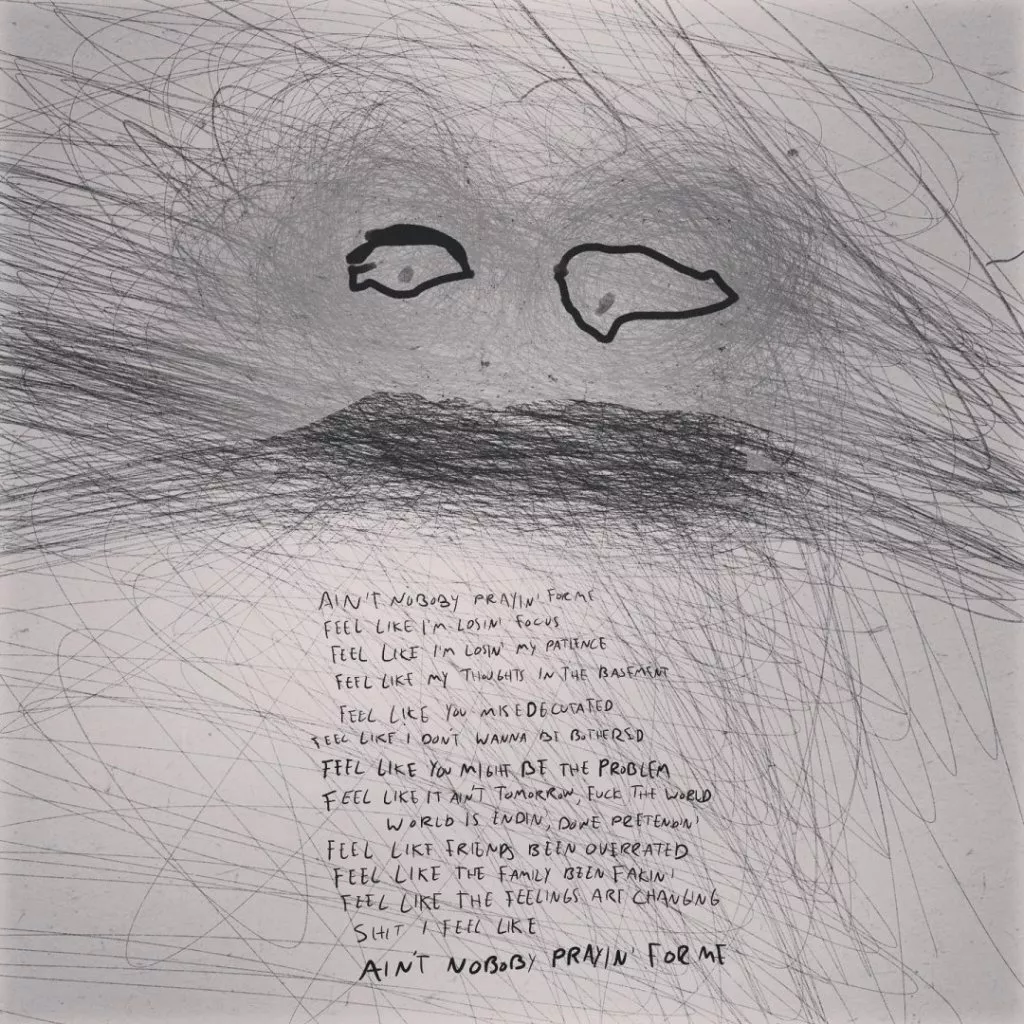 AIN'T NOBOBY PRAYIN' FOR ME
FEEL LIKE I'M LOSIN' FOCUS
FEEL LIKE I'M LOSIN' MY PATIENCE
FEEL LIKE MY THOUGHTS IN THE BASEMENT
FEEL LIKE YOU MISEDECUTATED
FEEL LIKE I DON'T WANNA BE BOTHERED
FEEL LIKE YOU MIGHT BE THE PROBLEM
FEEL LIKE IT AIN'T TOMORROW, FUCK THE WORLD
WORLD IS ENDIN', DONE PRETENDIN'
FEEL LIKE FRIENDS BEEN OVERRATED
FEEL LIKE THE FAMILY BEEN FAKIN'
FEEL LIKE THE FEELINGS ARE CHANGING
SHIT I FEEL LIKE
AIN'T NOBOBY PRAYIN' FOR ME